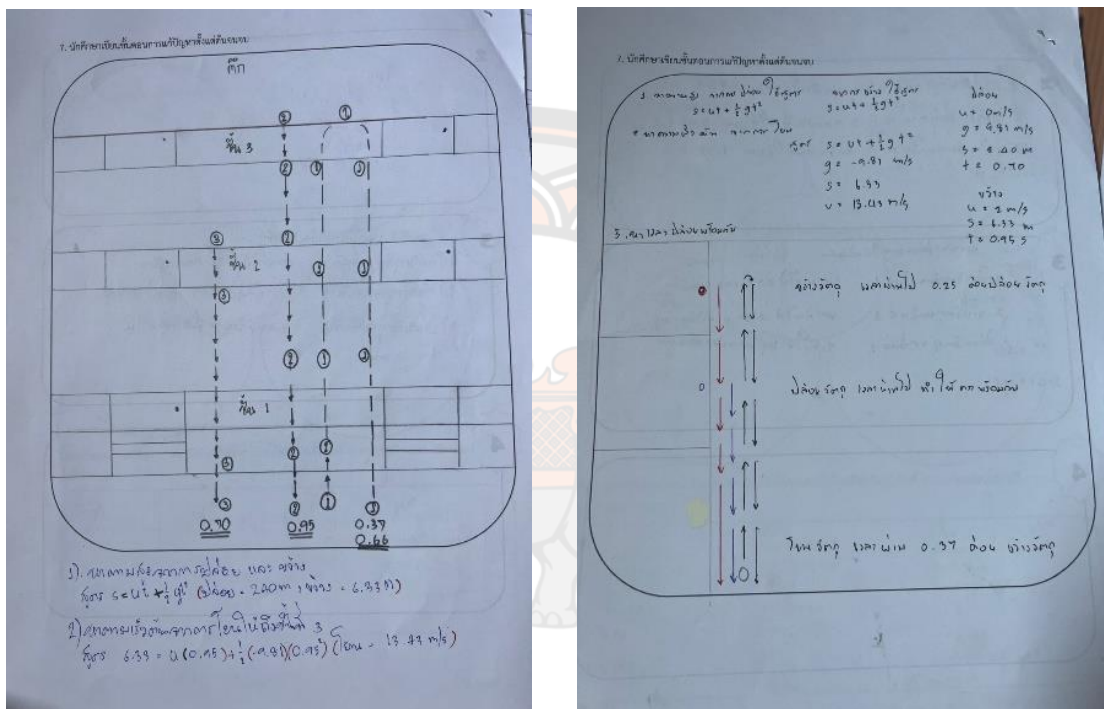 7. นักศึกษาเขียนขั้นตอนการแก้ปัญหาตั้งแต่ต้นจนจบ
ตึก
② ①
ชั้น 3
② ① ①
③ ②
ชั้น 2 ① ①
③
② ① ①
ชั้น 1
③ ② ①
③ ② ① ①
0.70 0.95 0.37
0.66
1). หาความสูงจากการปล่อย และ ขว้าง
สูตร s = ut + ½gt² (ปล่อย = 2.40 m, ขว้าง = 6.33 m)
2) หาความเร็วต้นจากการโยนให้ถึงชั้นที่ 3
สูตร 6.33 = u(0.95) + ½(-9.81)(0.95)² (โยน = 13.43 m/s)
7. นักศึกษาเขียนขั้นตอนการแก้ปัญหาตั้งแต่ต้นจนจบ
จากการ ปล่อย ใช้สูตร จากการ ขว้าง ใช้สูตร
s = ut + ½gt² s = ut + ½gt²
ปล่อย
u = 0 m/s
g = 9.81 m/s
s = 2.40 m
t = 0.70
หาความเร็วต้น จากการ โยน
สูตร s = ut + ½gt²
g = -9.81 m/s
s = 6.33
v = 13.43 m/s
ขว้าง
u = 2 m/s
s = 6.33 m
t = 0.95 s
ขว้างวัตถุ เวลาผ่านไป 0.25 ก่อนปล่อยวัตถุ
ปล่อยวัตถุ เวลาผ่านไป ทำให้ตกพร้อมกัน
โยนวัตถุ เวลาผ่าน 0.37 ก่อน ขว้างวัตถุ